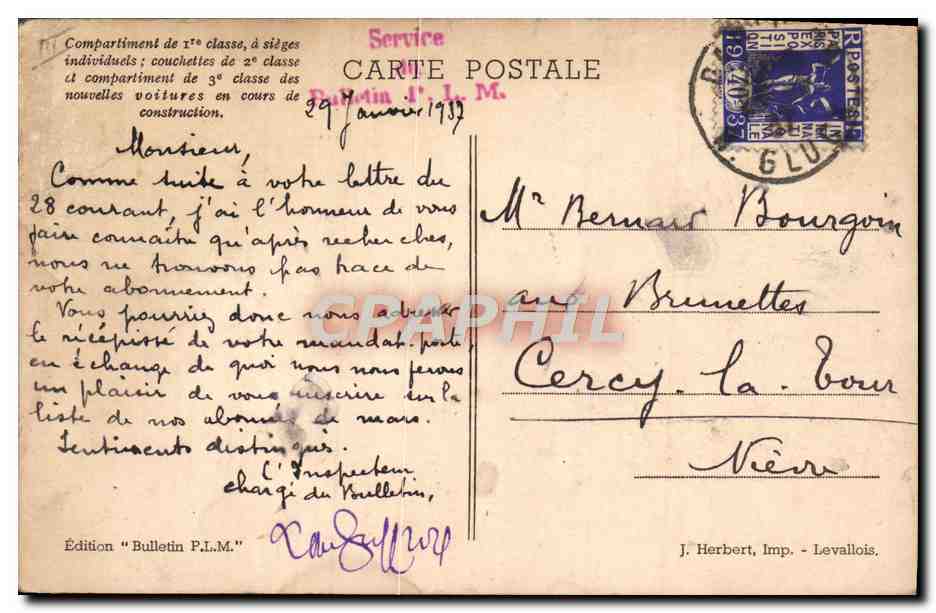 Compartiment de 1re classe, à sièges
individuels ; couchettes de 2e classe
et compartiment de 3e classe des
nouvelles voitures en cours de
construction.
Service
du
Bulletin P. L. M.
CARTE POSTALE
29 Janvier 1937
Monsieur,
Comme suite à votre lettre du
28 courant, j'ai l'honneur de vous
faire connaître qu'après recherches,
nous ne trouvons pas trace de
votre abonnement.
Vous pourriez donc nous adresser
le récépissé de votre mandat-poste,
en échange de quoi nous nous ferons
un plaisir de vous inscrire sur la
liste de nos abonnés de mars.
Sentiments distingués.
L'Inspecteur
chargé du Bulletin,
Édition "Bulletin P.L.M."
Mr Bernard Bourgoin
aux Brunettes
Cercy-la-Tour
Nièvre
J. Herbert, Imp. - Levallois.
CPAPHIL